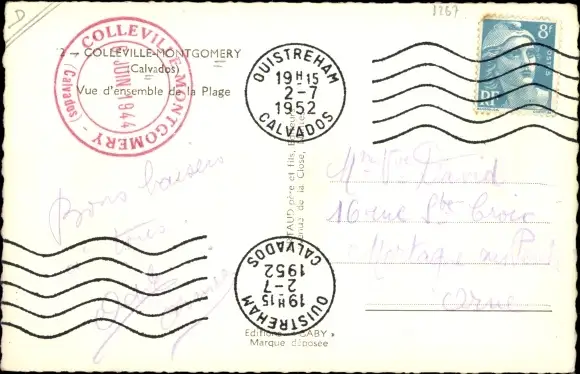 D
1267
2 — COLLEVILLE-MONTGOMERY
(Calvados)
Vue d'ensemble de la Plage
COLLEVILLE-MONTGOMERY -
(Calvados)
JUIN 1944
OUISTREHAM
19H15
2-7
1952
CALVADOS
8F
POSTES
RF
Bons baisers
à tous
Mme Vve David
16 rue Ste Croix
Mortagne au P
Orne
père et fils,
de la Close,
OUISTREHAM
19H15
2-7
1952
CALVADOS
Editions "GABY"
Marque déposée